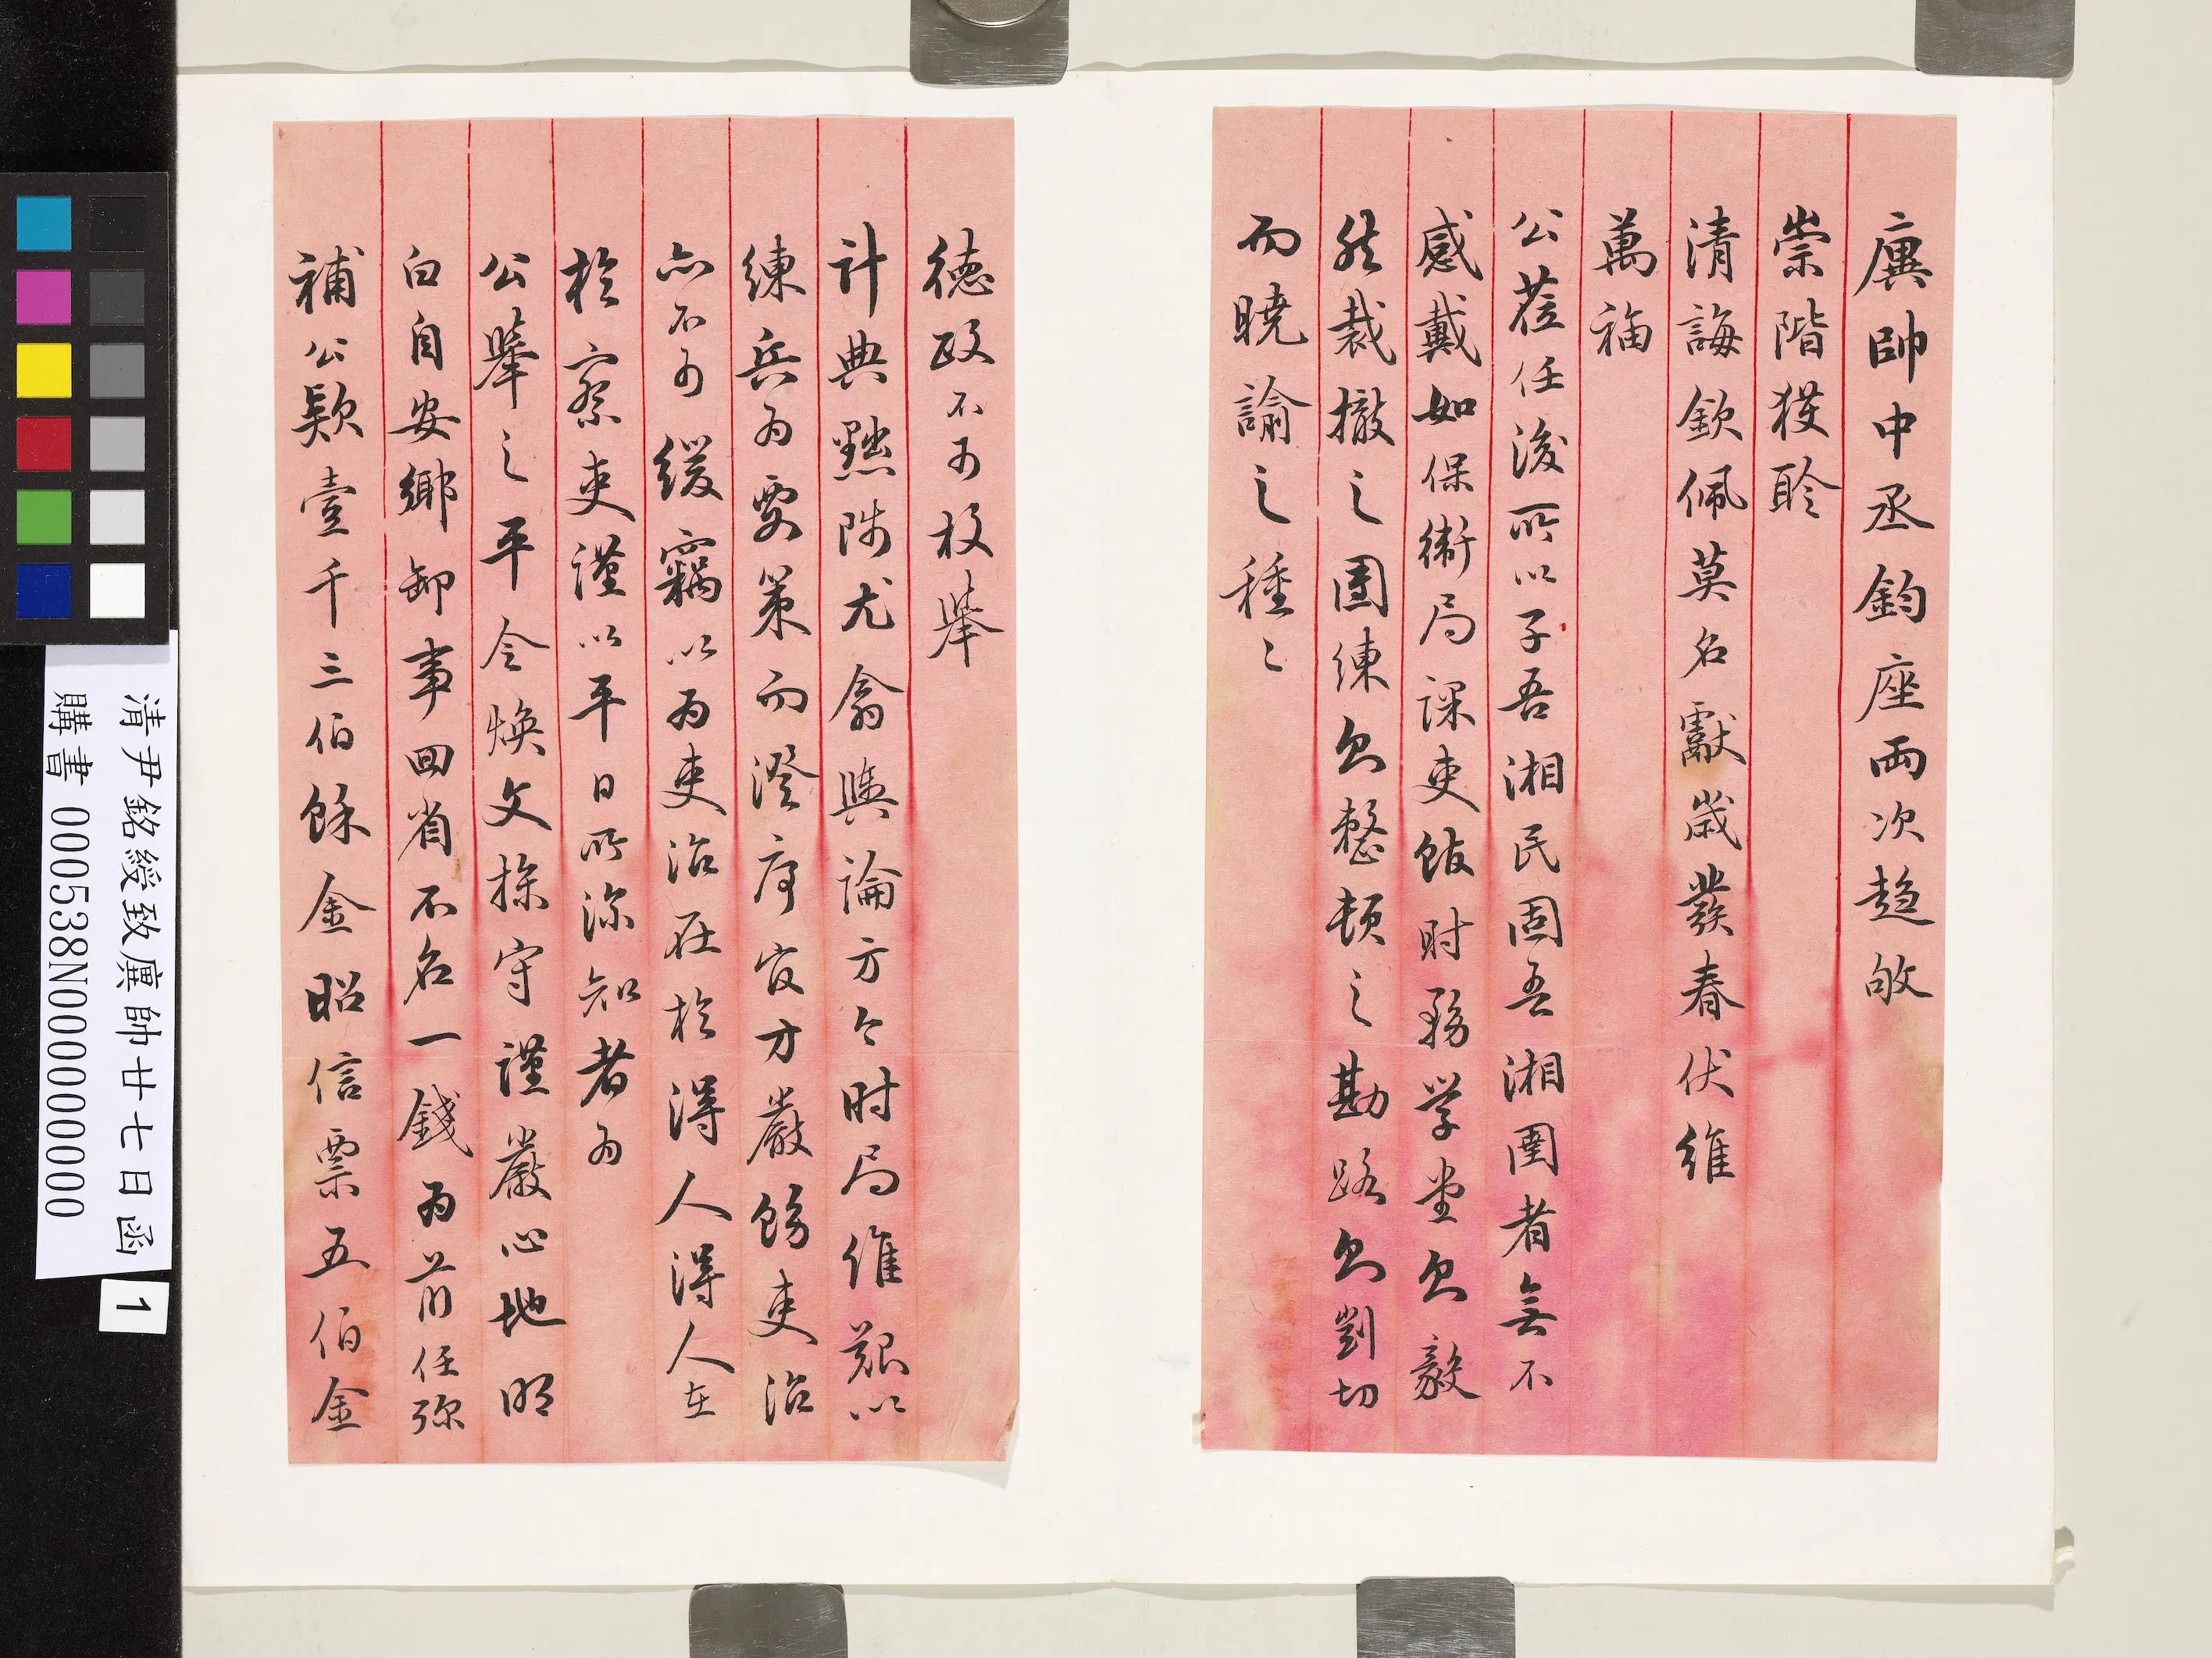 廙帥中丞鈞座兩次趨敂
崇階獲聆
清誨欽佩莫名獻歲發春伏維
萬福
公蒞任後所以子吾湘民固吾湘圉者無不
感戴如保衛局課吏館時務學堂則毅
然裁撤之團練則整頓之勘路則剴切
而曉諭之種〻
德政不可枚舉
計典黜陟尤翕輿論方今時局維艱以
練兵為要策而澄序官方嚴飭吏治
亦不可緩竊以為吏治在於得人得人在
於察吏謹以平日所深知者為
公舉之平令煥文操守謹嚴心地明
白自安鄉卸事回省不名一錢為前任彌
補公款壹千三伯餘金昭信票五伯金
清尹銘綬致廙帥廿七日函
購書 000538N000000000
1